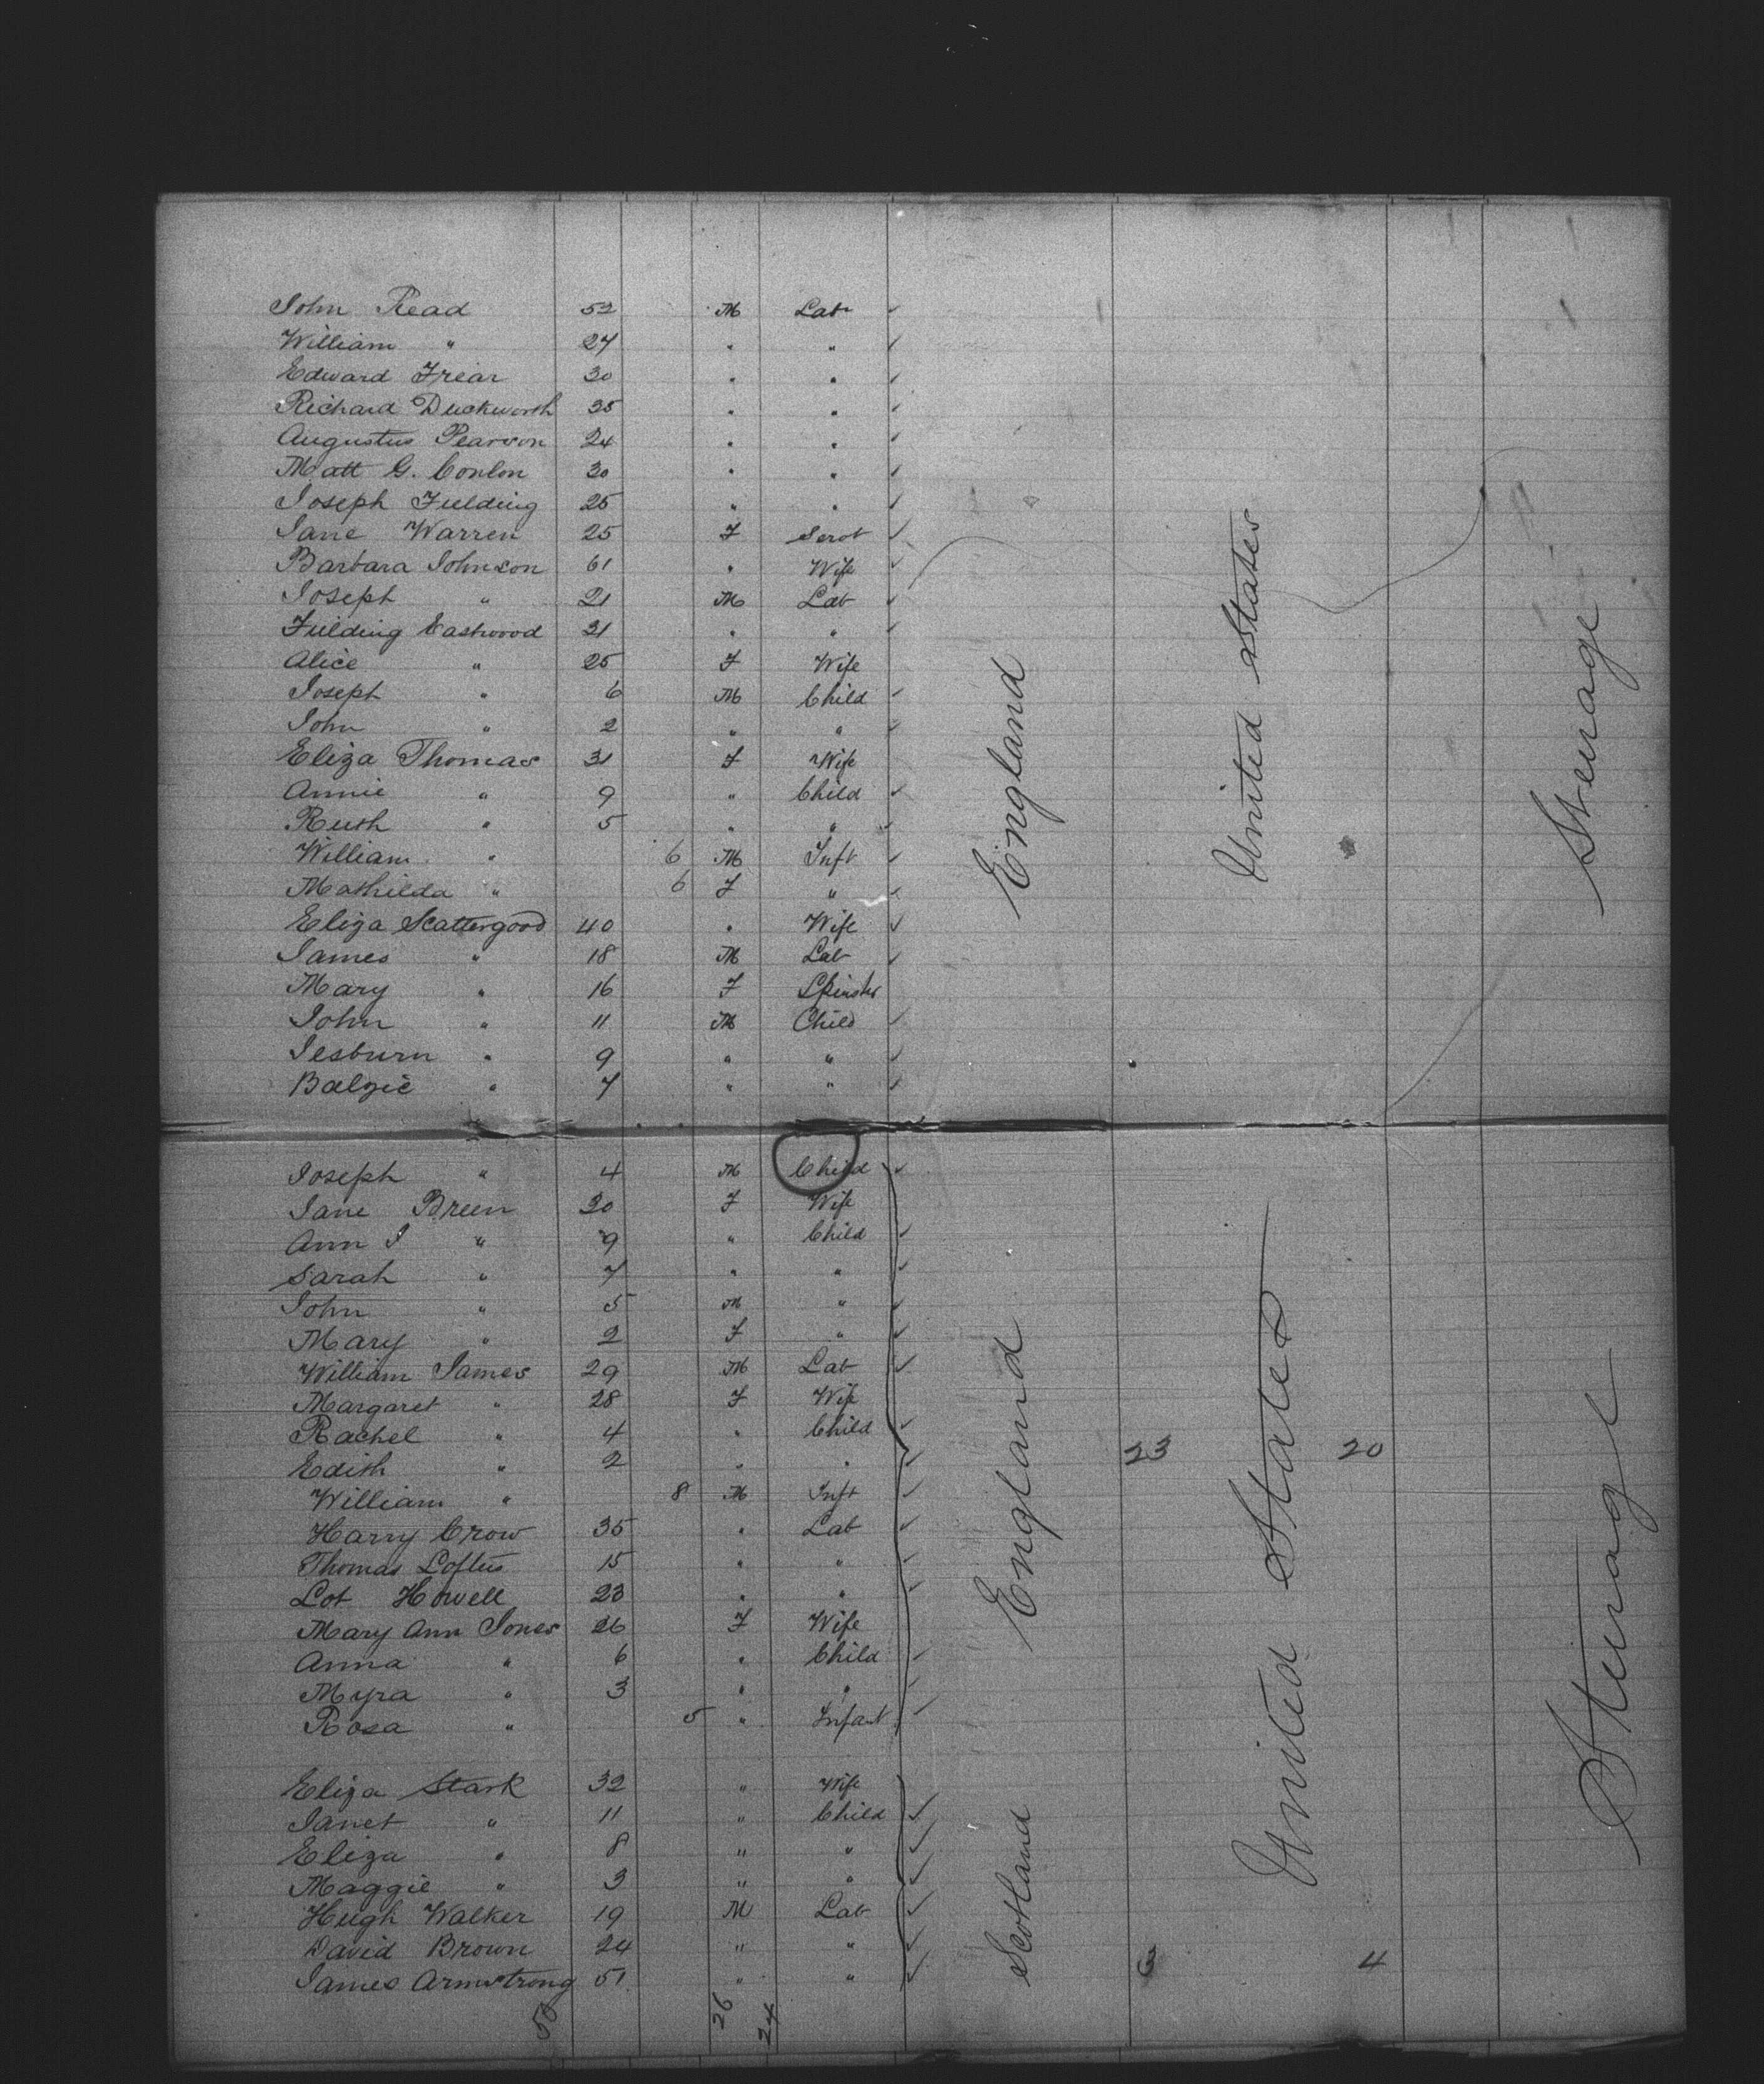 John Read 52 M Lab ✓
William " 24 " " ✓
Edward Frear 30 " " ✓
Richard Duckworth 35 " " ✓
Augustus Pearson 24 " " ✓
Matt G. Conlon 30 " " ✓
Joseph Fielding 25 " " ✓
Jane Warren 25 F Servt ✓
Barbara Johnson 61 " Wife ✓
Joseph " 21 M Lab ✓
Fielding Eastwood 31 " " ✓
Alice " 25 F Wife
Joseph " 6 M Child ✓
John " 2 " " ✓
Eliza Thomas 31 F Wife
Annie " 9 " Child ✓
Ruth " 5 " " ✓
William " 6 M Inft ✓
Mathilda " 6 F " ✓
Eliza Scattergood 40 " Wife ✓
James " 18 M Lab ✓
Mary " 16 F Spinster
John " 11 M Child ✓
Jesburn " 9 " " ✓
Balzie " 7 " " ✓
England
United States
Steerage
Joseph " 4 M Child ✓
Jane Breen 30 F Wife
Ann J " 9 " Child ✓
Sarah " 7 " " ✓
John " 5 M " ✓
Mary " 2 F " ✓
William James 29 M Lab ✓
Margaret " 28 F Wife
Rachel " 4 " Child ✓
Edith " 2 " " ✓
William " 8 M Inft ✓
Harry Crow 35 " Lab ✓
Thomas Loftus 15 " " ✓
Lot Howell 23 " " ✓
Mary Ann Jones 26 F Wife
Anna " 6 " Child ✓
Myra " 3 " " ✓
Rosa " 5 " Infant ✓
England
23 20
Eliza Stark 32 " Wife
Janet " 11 " Child ✓
Eliza " 8 " " ✓
Maggie " 3 " " ✓
Hugh Walker 19 M Lab ✓
David Brown 24 " " ✓
James Armstrong 51 " " ✓
Scotland
3 4
United States
Steerage
50 26 24